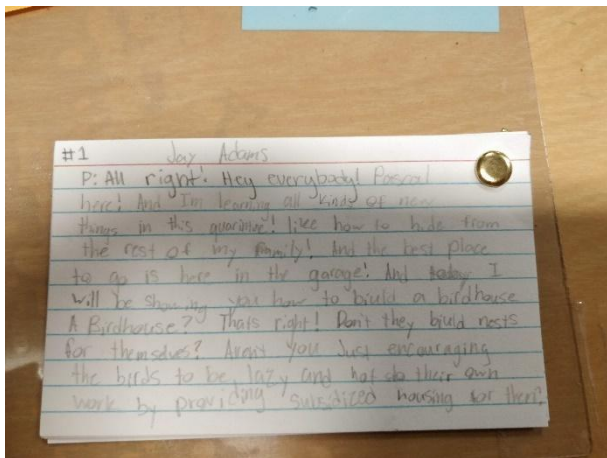 #1 Jay Adams
P: All right! Hey everybody! Pascal
here! And I'm learning all kinds of new
things in this quarintine! like how to hide from
the rest of my family! And the best place
to go is here in the garage! And today I
will be showing you how to biuld a birdhouse
A Birdhouse? Thats right! Don't they biuld nests
for themselves? Aren't you Just encouraging
the birds to be lazy and not do their own
work by providing subsidized housing for them?